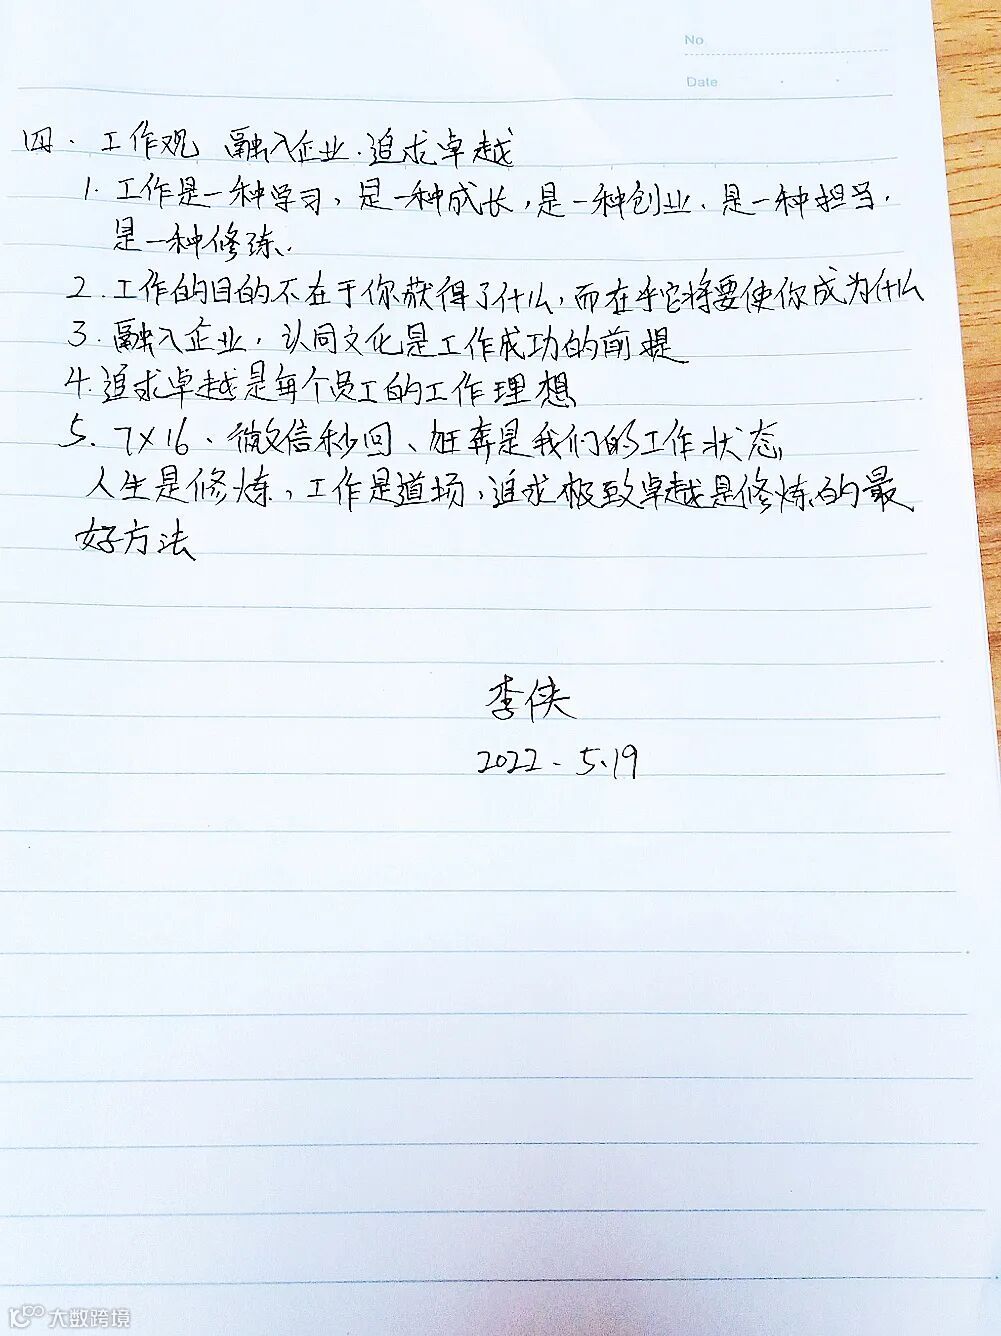 No
Date
四、工作观 融入企业、追求卓越
1. 工作是一种学习，是一种成长，是一种创业、是一种担当，
是一种修炼、
2. 工作的目的不在于你获得了什么，而在乎它将要使你成为什么
3. 融入企业，认同文化是工作成功的前提
4. 追求卓越是每个员工的工作理想
5. 7×16、微信秒回、狂奔是我们的工作状态
人生是修炼，工作是道场，追求极致卓越是修炼的最
好方法
李侠
2022、5.19
大数跨境